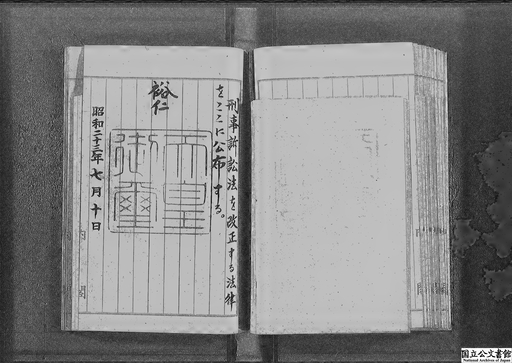 刑事訴訟法を改正する法律
をここに公布する。
裕仁
天皇
御璽
昭和二十三年七月十日
内閣
国立公文書館
National Archives of Japan